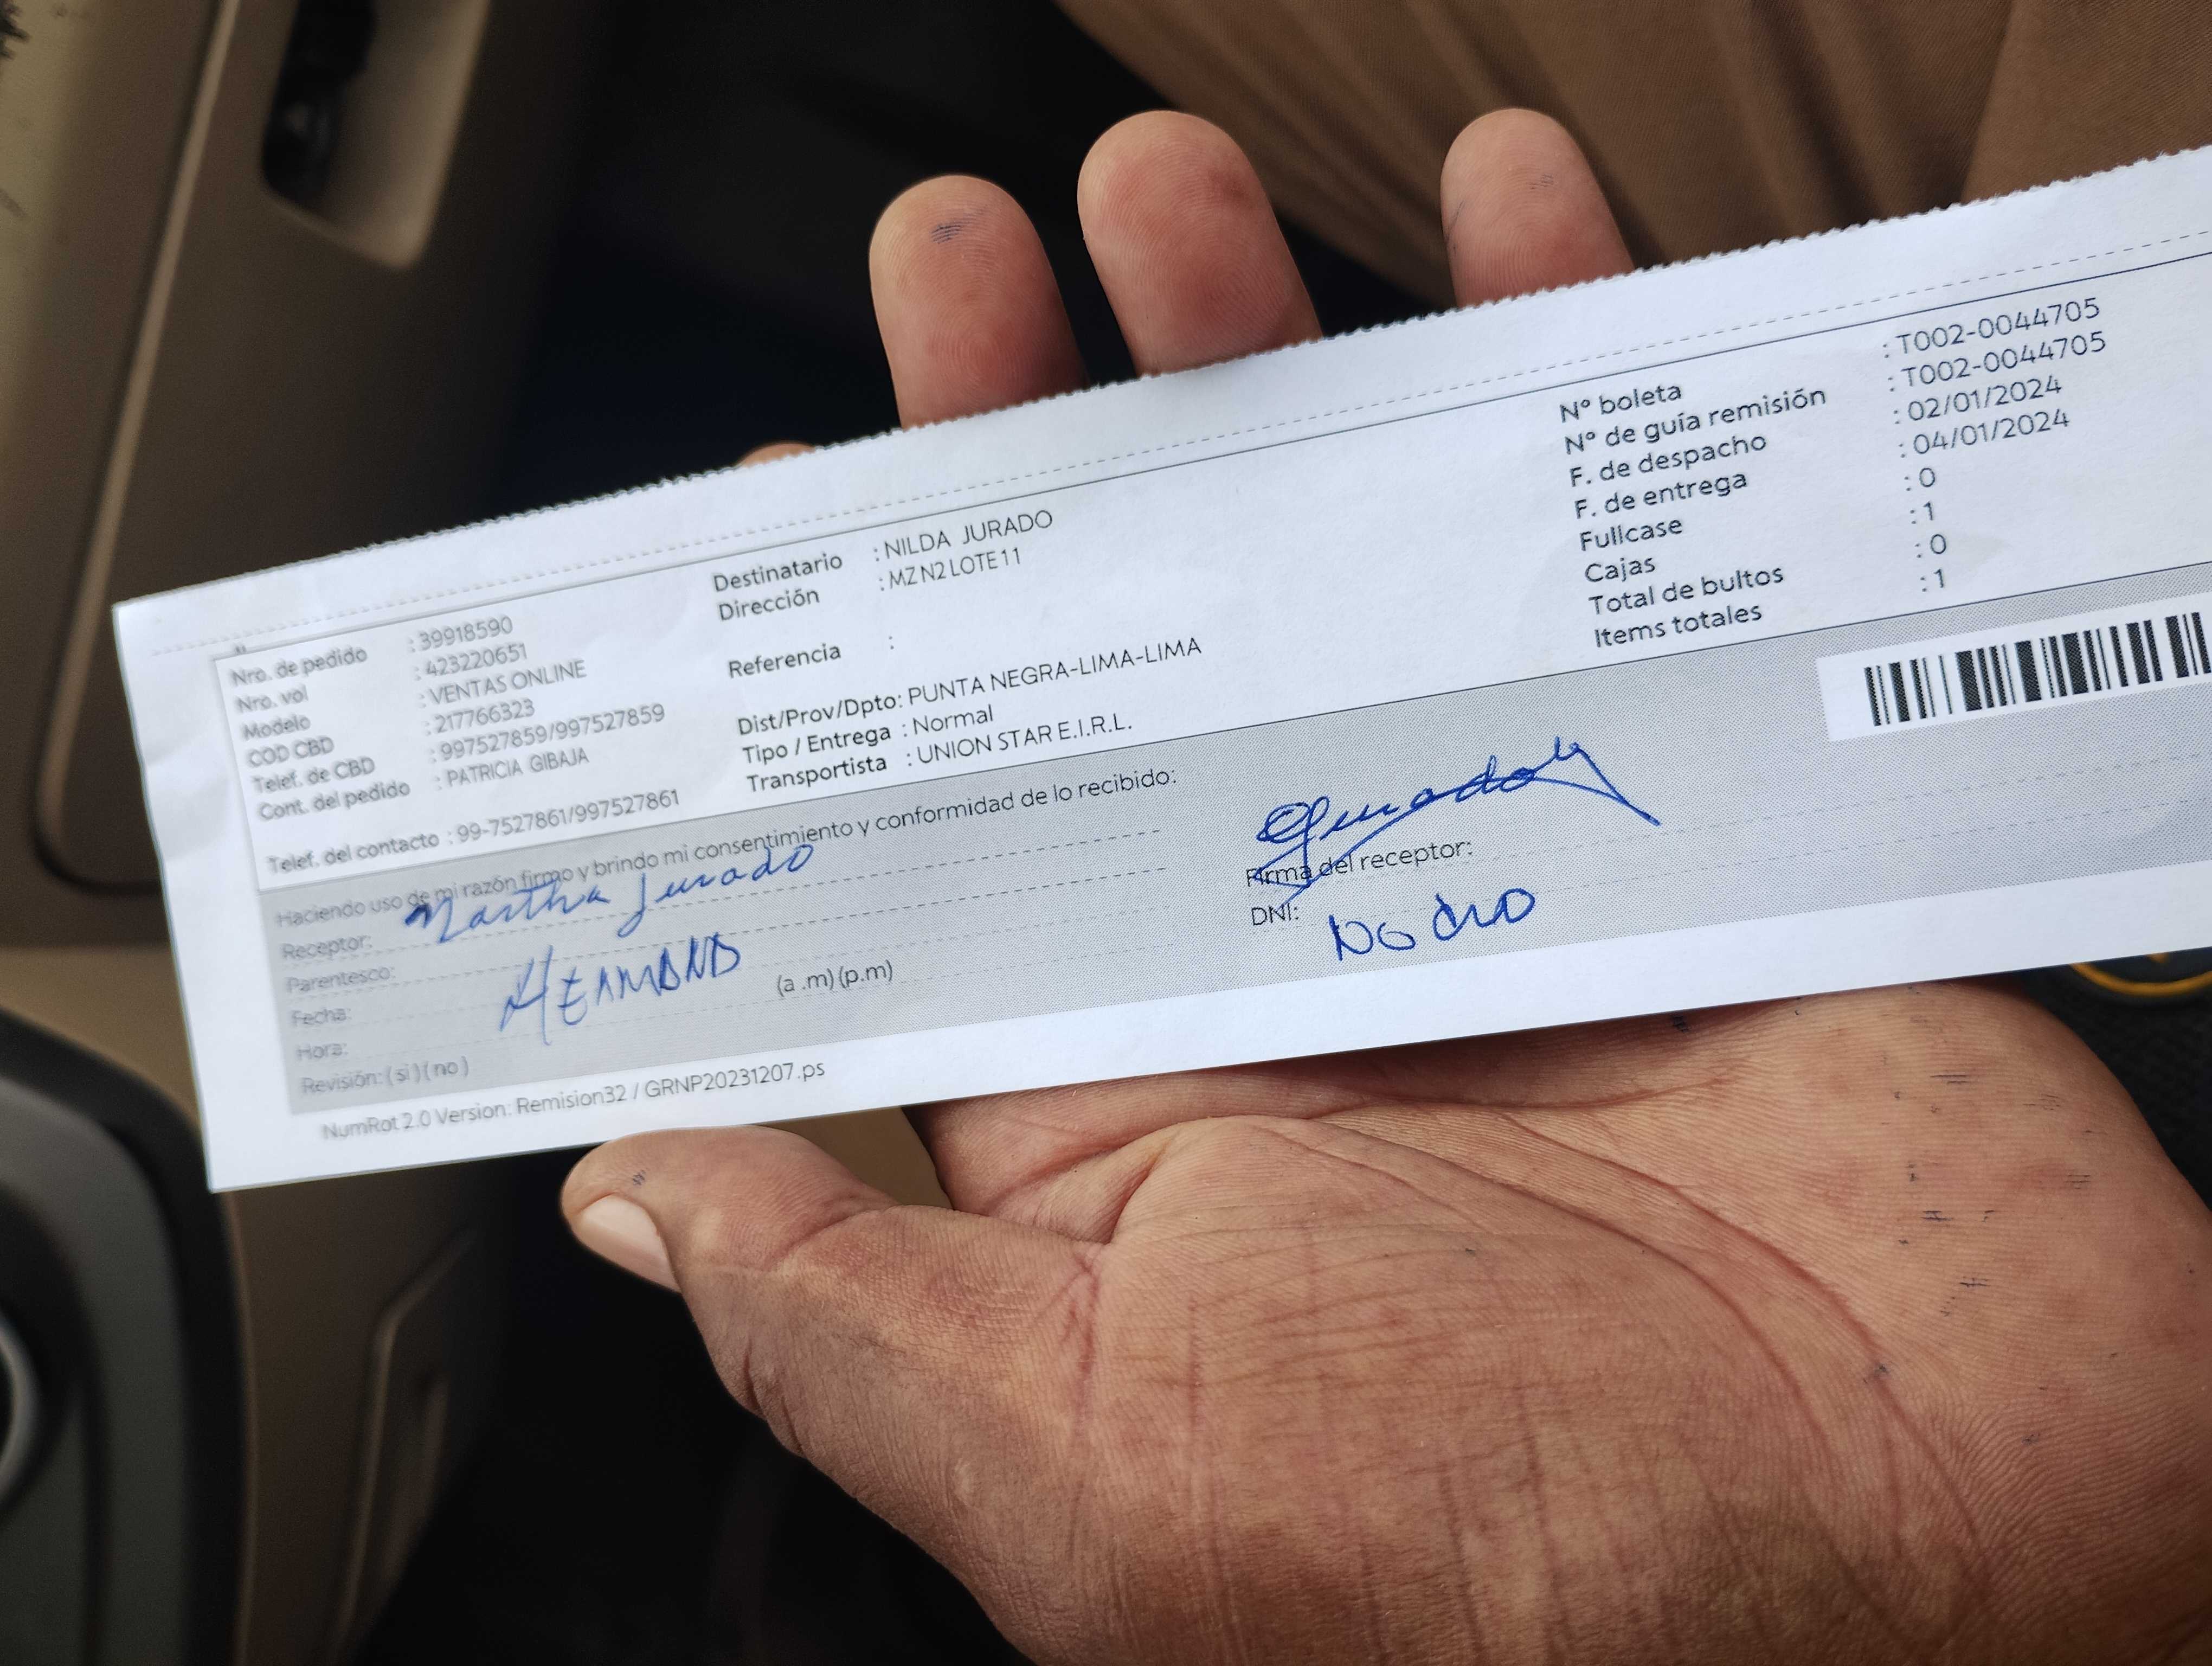 Nro. de pedido : 39918590
Nro. vol : 423220651
Modelo : VENTAS ONLINE
COD CBD : 217766323
Telef. de CBD : 997527859/997527859
Cont. del pedido : PATRICIA GIBAJA
Telef. del contacto : 99-7527861/997527861
Destinatario : NILDA JURADO
Dirección : MZ N2 LOTE 11
Referencia :
Dist/Prov/Dpto: PUNTA NEGRA-LIMA-LIMA
Tipo / Entrega : Normal
Transportista : UNION STAR E.I.R.L.
Nº boleta : T002-0044705
Nº de guía remisión : T002-0044705
F. de despacho : 02/01/2024
F. de entrega : 04/01/2024
Fullcase : 0
Cajas : 1
Total de bultos : 0
Items totales : 1
Haciendo uso de mi razón firmo y brindo mi consentimiento y conformidad de lo recibido:
Receptor: Martha Jurado
Parentesco: HERMANA
Fecha:
Hora: (a .m) (p.m)
Revisión: ( si ) ( no )
Firma del receptor:
DNI: NO DIO
NumRot 2.0 Version: Remision32 / GRNP20231207.ps